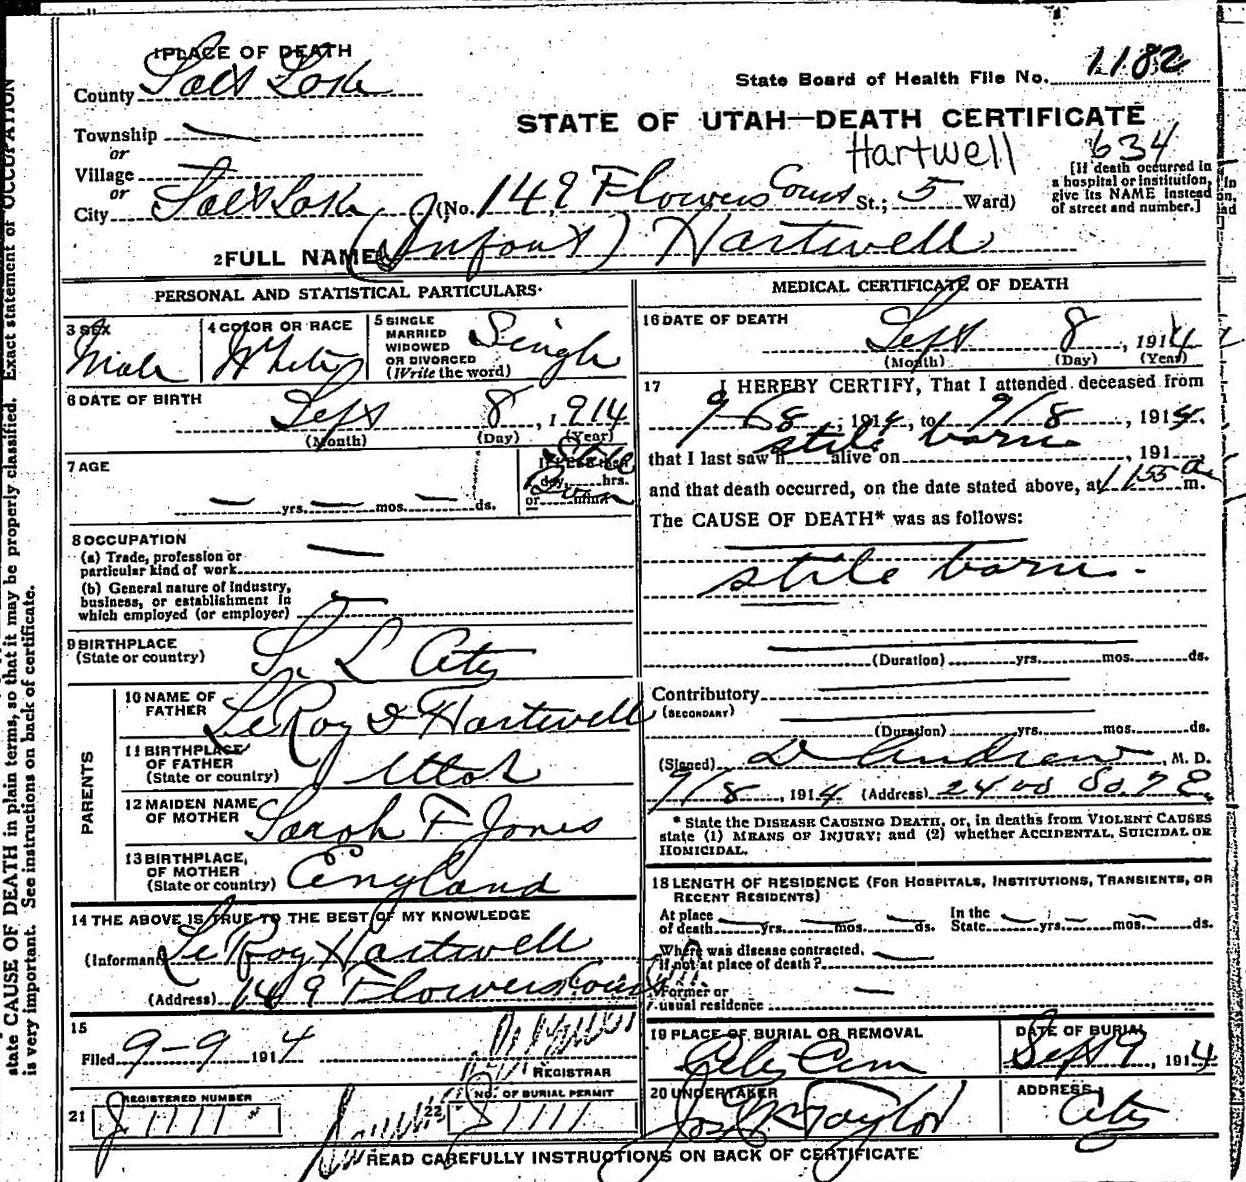 1 PLACE OF DEATH
County Salt Lake
State Board of Health File No. 1182
STATE OF UTAH—DEATH CERTIFICATE
Township —
or
Village
or
City Salt Lake (No. 149 Flowers Court St.; 5 Ward)
Hartwell 634
[If death occurred in
a hospital or institution,
give its NAME instead
of street and number.]
2 FULL NAME (Infant) Hartwell
PERSONAL AND STATISTICAL PARTICULARS
3 SEX
Male
4 COLOR OR RACE
White
5 SINGLE
MARRIED
WIDOWED
OR DIVORCED
(Write the word)
Single
6 DATE OF BIRTH
Sept 8, 1914
(Month) (Day) (Year)
7 AGE
— yrs. — mos. — ds.
If LESS than
1 day, hrs.
or min.
Stile Born
8 OCCUPATION
(a) Trade, profession or
particular kind of work —
(b) General nature of Industry,
business, or establishment in
which employed (or employer) —
9 BIRTHPLACE
(State or country)
S. L. City
PARENTS
10 NAME OF
FATHER
LeRoy D Hartwell
11 BIRTHPLACE
OF FATHER
(State or country)
Utah
12 MAIDEN NAME
OF MOTHER
Sarah F Jones
13 BIRTHPLACE,
OF MOTHER
(State or country)
England
14 THE ABOVE IS TRUE TO THE BEST OF MY KNOWLEDGE
(Informant) LeRoy Hartwell
(Address) 149 Flowers Court
15
Filed 9-9 1914
REGISTRAR
21 REGISTERED NUMBER
J 1111
22 NO. OF BURIAL PERMIT
J 1111
MEDICAL CERTIFICATE OF DEATH
16 DATE OF DEATH
Sept 8, 1914
(Month) (Day) (Year)
17 I HEREBY CERTIFY, That I attended deceased from
9/8, 1914, to 9/8, 1914
stile born
that I last saw h alive on , 191
and that death occurred, on the date stated above, at 1 155 a m.
The CAUSE OF DEATH* was as follows:
stile born.
(Duration) yrs. mos. ds.
Contributory
(SECONDARY)
(Duration) yrs. mos. ds.
(Signed) D Andrew, M. D.
9/8, 1914 (Address) 2400 So. 7 E.
* State the DISEASE CAUSING DEATH, or, in deaths from VIOLENT CAUSES
state (1) MEANS OF INJURY; and (2) whether ACCIDENTAL, SUICIDAL OR
HOMICIDAL.
18 LENGTH OF RESIDENCE (FOR HOSPITALS, INSTITUTIONS, TRANSIENTS, OR
RECENT RESIDENTS)
At place
of death — yrs. — mos. — ds.
In the
State — yrs. — mos. — ds.
Where was disease contracted,
if not at place of death? —
Former or
usual residence —
19 PLACE OF BURIAL OR REMOVAL
City Cem
DATE OF BURIAL
Sept 9, 1914
20 UNDERTAKER
Jos. Wm Taylor
ADDRESS
City
READ CAREFULLY INSTRUCTIONS ON BACK OF CERTIFICATE
state CAUSE OF DEATH in plain terms, so that it may be properly classified. Exact statement of OCCUPATION
is very important. See instructions on back of certificate.